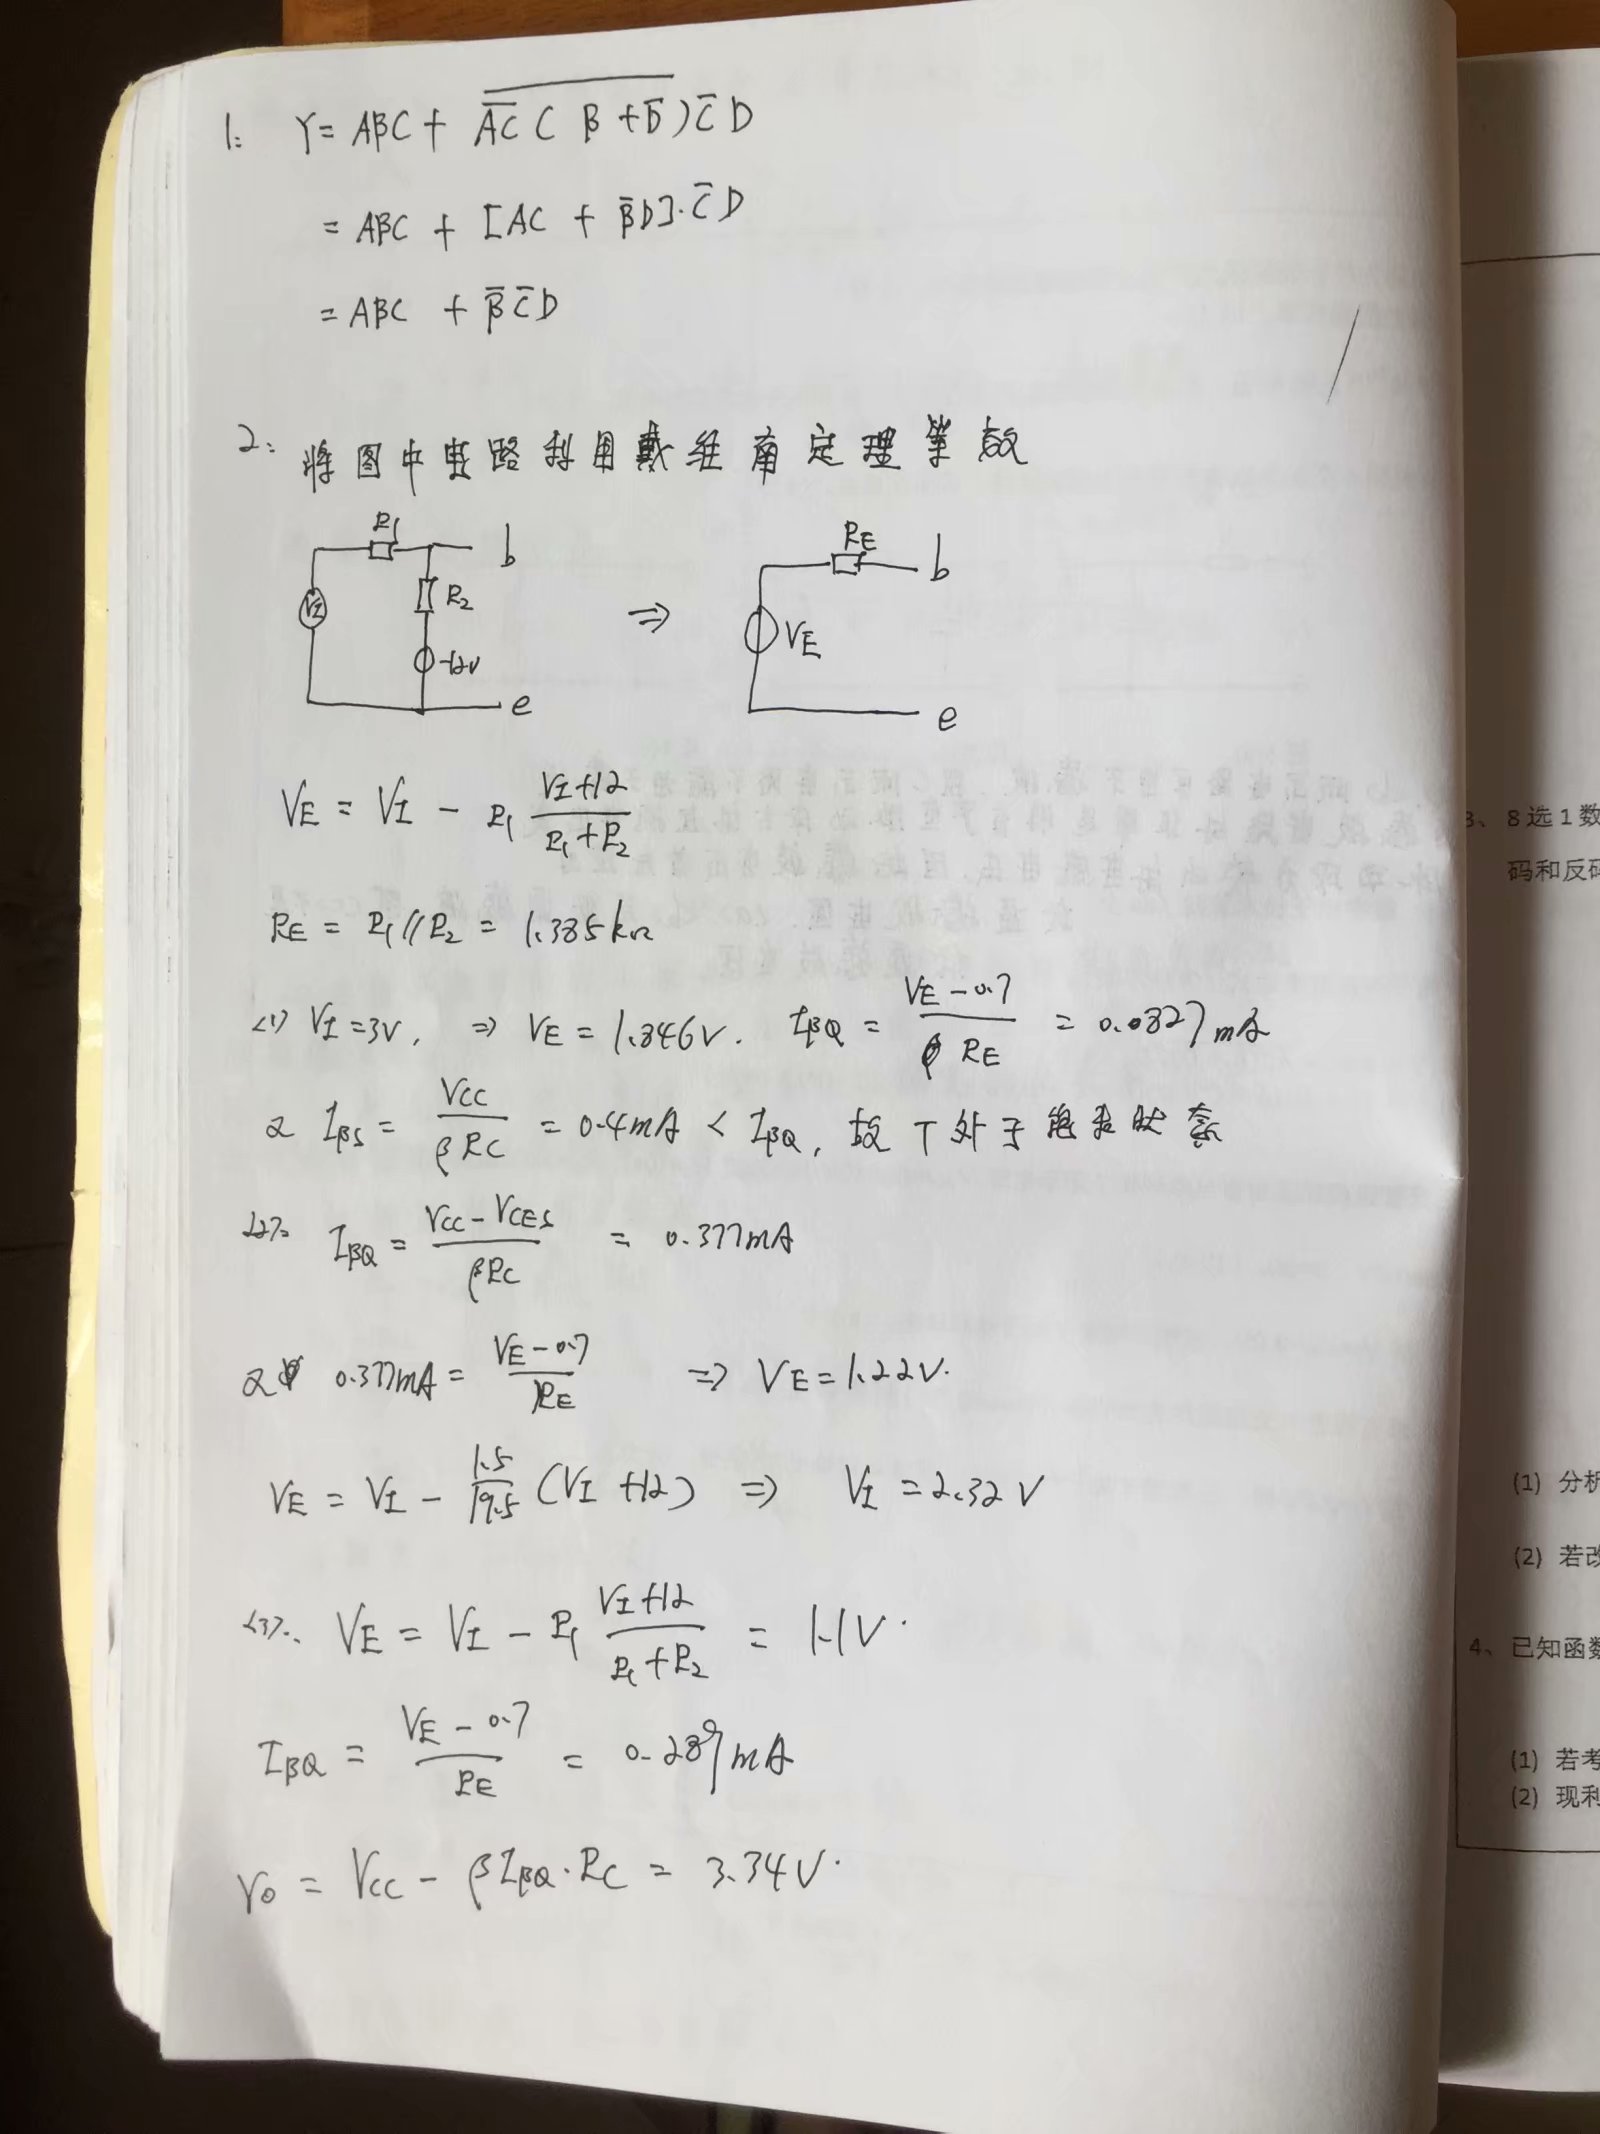 1. Y = ABC + \overline{\overline{AC}(B+\overline{D})}\overline{C}D
= ABC + [AC + \overline{B}D]·\overline{C}D
= ABC + \overline{B}\overline{C}D
2. 将图中电路利用戴维南定理等效
R1 b R2 VI -12V e ⇒ RE b VE e
VE = VI - R1 \frac{VI+12}{R1+R2}
RE = R1//R2 = 1.385kΩ
<1> VI=3V, ⇒ VE = 1.846V. IBQ = \frac{VE-0.7}{RE} = 0.0827mA
又 IBS = \frac{VCC}{βRC} = 0.4mA < IBQ, 故T处于饱和状态
<2>. IBQ = \frac{VCC-VCES}{βRC} = 0.377mA
又 0.377mA = \frac{VE-0.7}{RE} ⇒ VE = 1.22V.
VE = VI - \frac{1.5}{19.5}(VI+12) ⇒ VI = 2.32V
<3>. VE = VI - R1 \frac{VI+12}{R1+R2} = 1.1V.
IBQ = \frac{VE-0.7}{RE} = 0.289mA
VO = VCC - βIBQ·RC = 3.34V.
3、8选1数
码和反码
(1) 分析
(2) 若改
4、已知函数
(1) 若考
(2) 现利